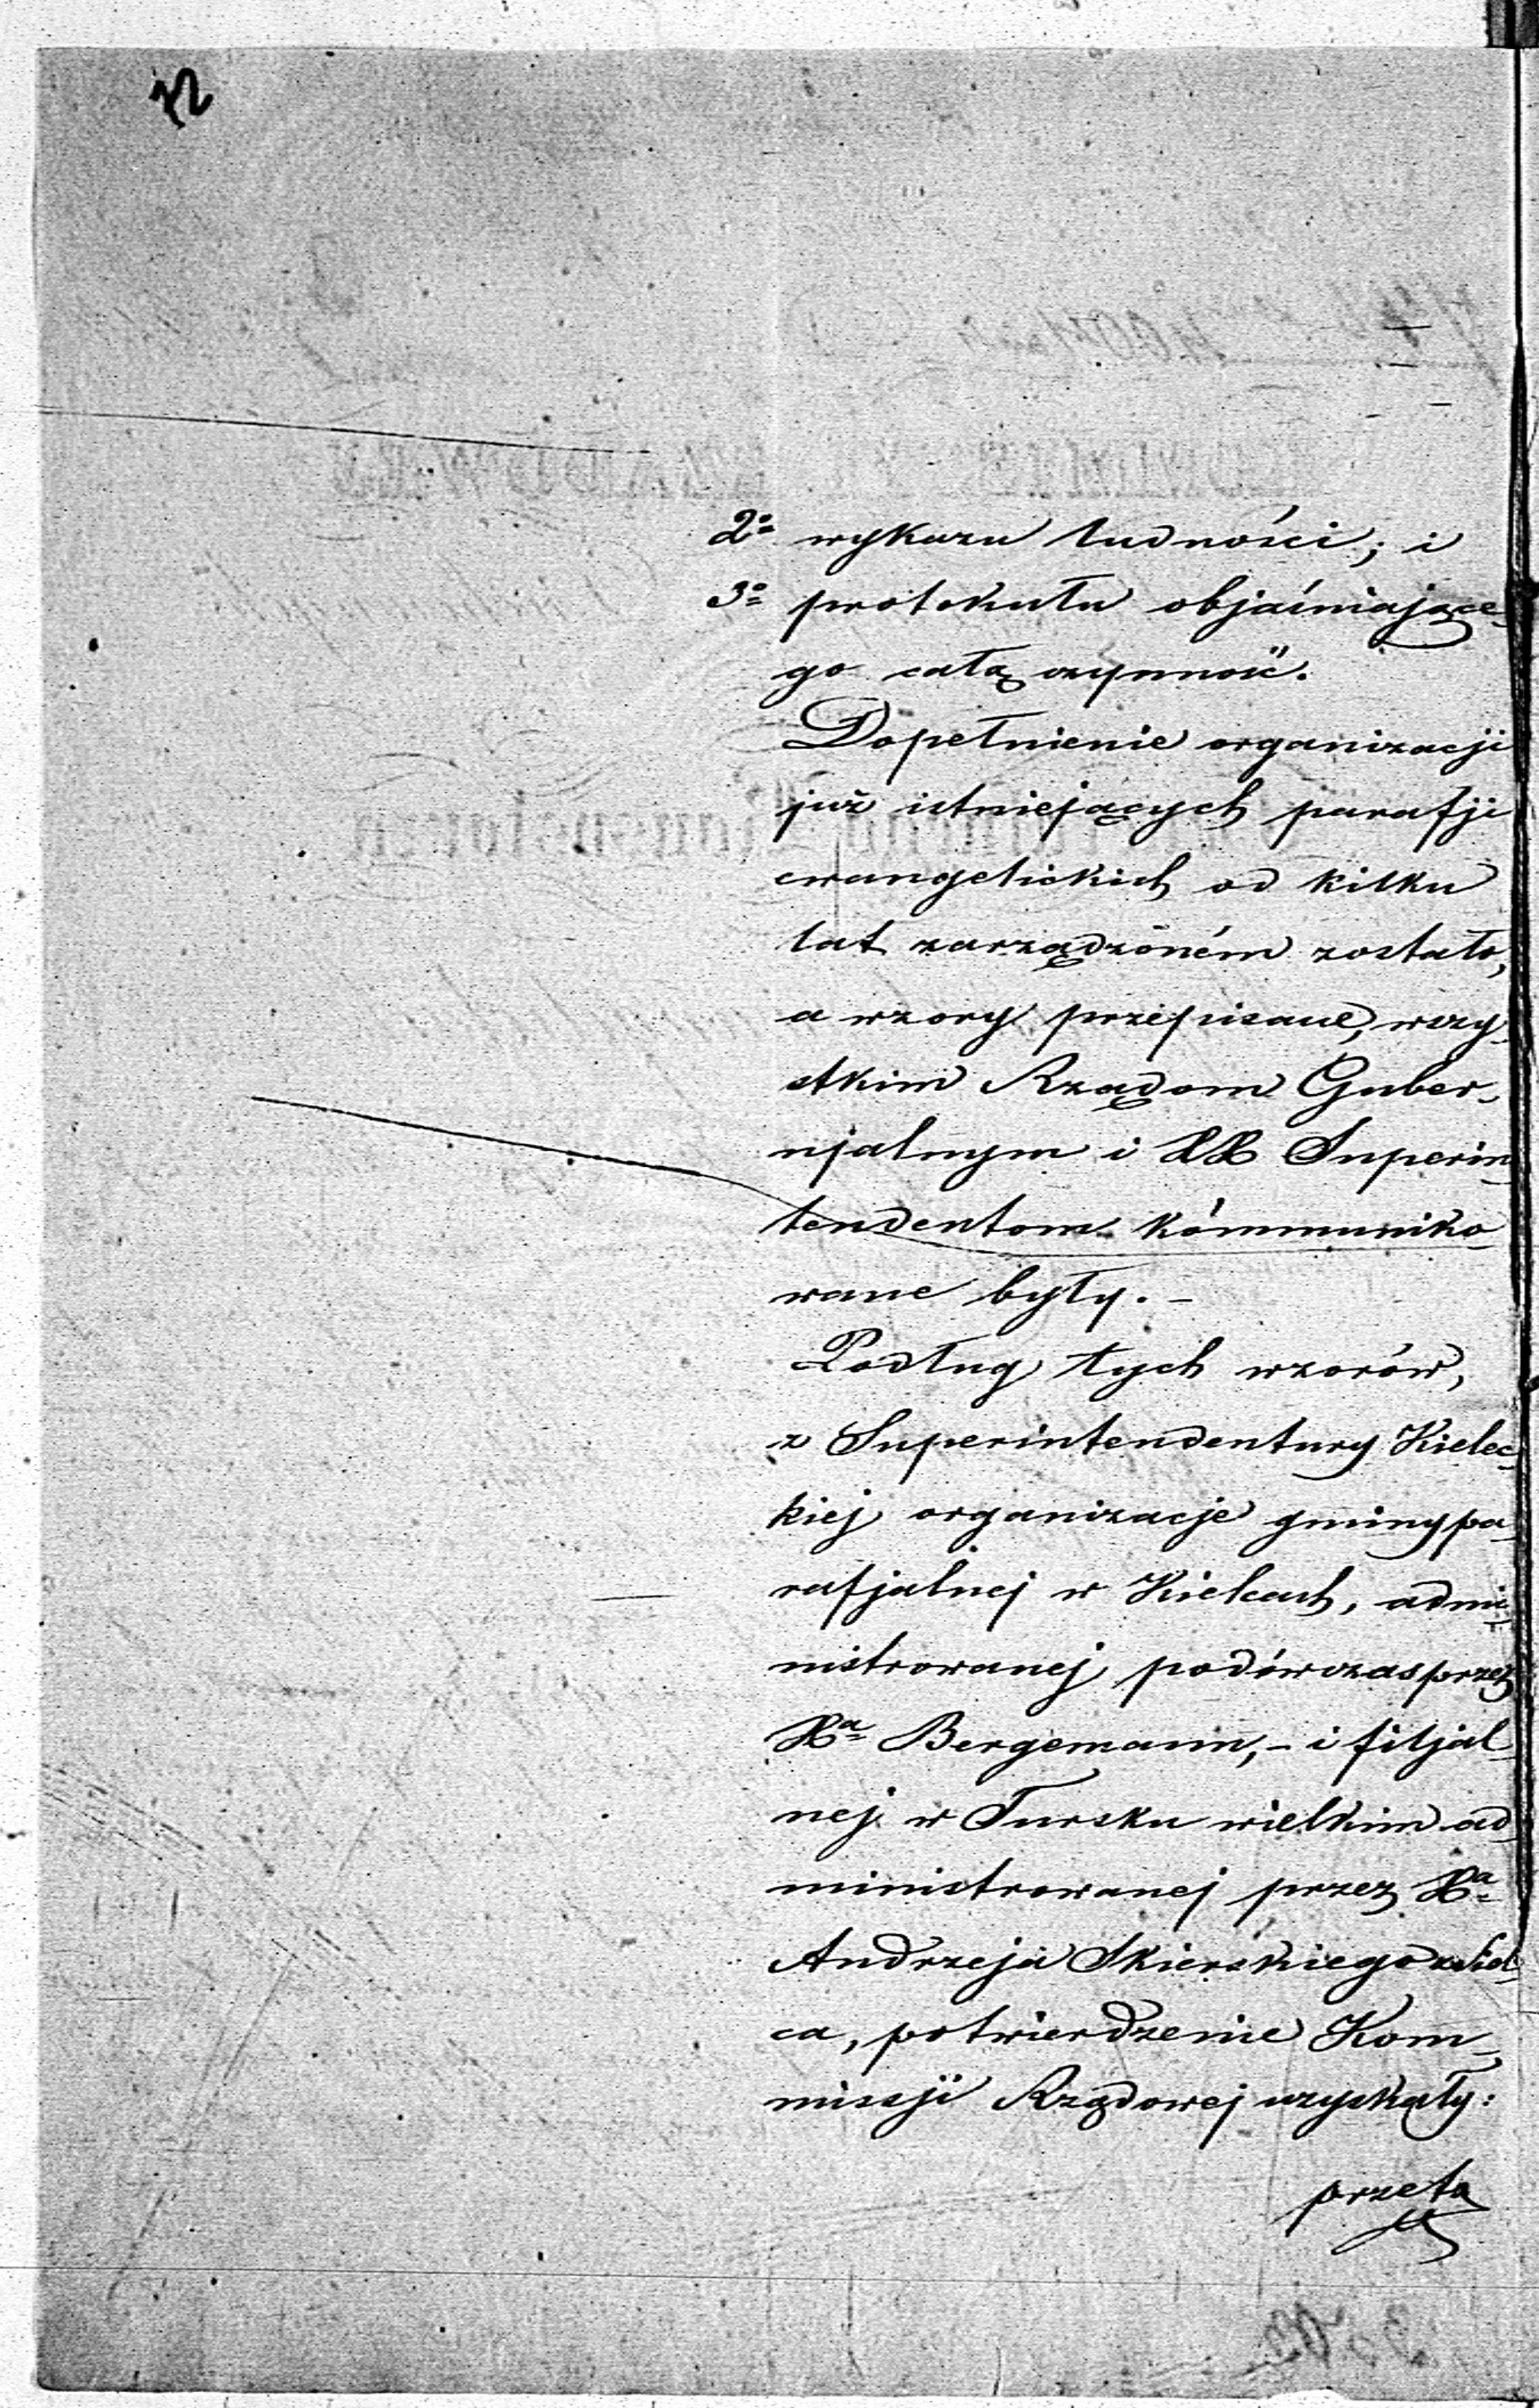 72
2o wykazu ludności; i
3o protokułu objaśniające-
go całą czynność.
Dopełnienie organizacji
już istniejących parafji
ewangelickich od kilku
lat zarządzoném zostało,
a wzory przepisane, wszy-
stkim Rządom Guber-
njalnym i XX Superin-
tendentom kommuniko-
wane były. -
Podług tych wzorów,
z Superintendentury Kielec-
kiej organizacje gminy pa-
rafjalnej w Kielcach, admi-
nistrowanej podówczas przez
Xa Bergemann, - i filjal-
nej w Tursku wielkim ad-
ministrowanej przez Xa
Andrzeja Skierskiego z Siel-
ca, potwierdzenie Kom-
missji Rządowej uzyskały:
przeto